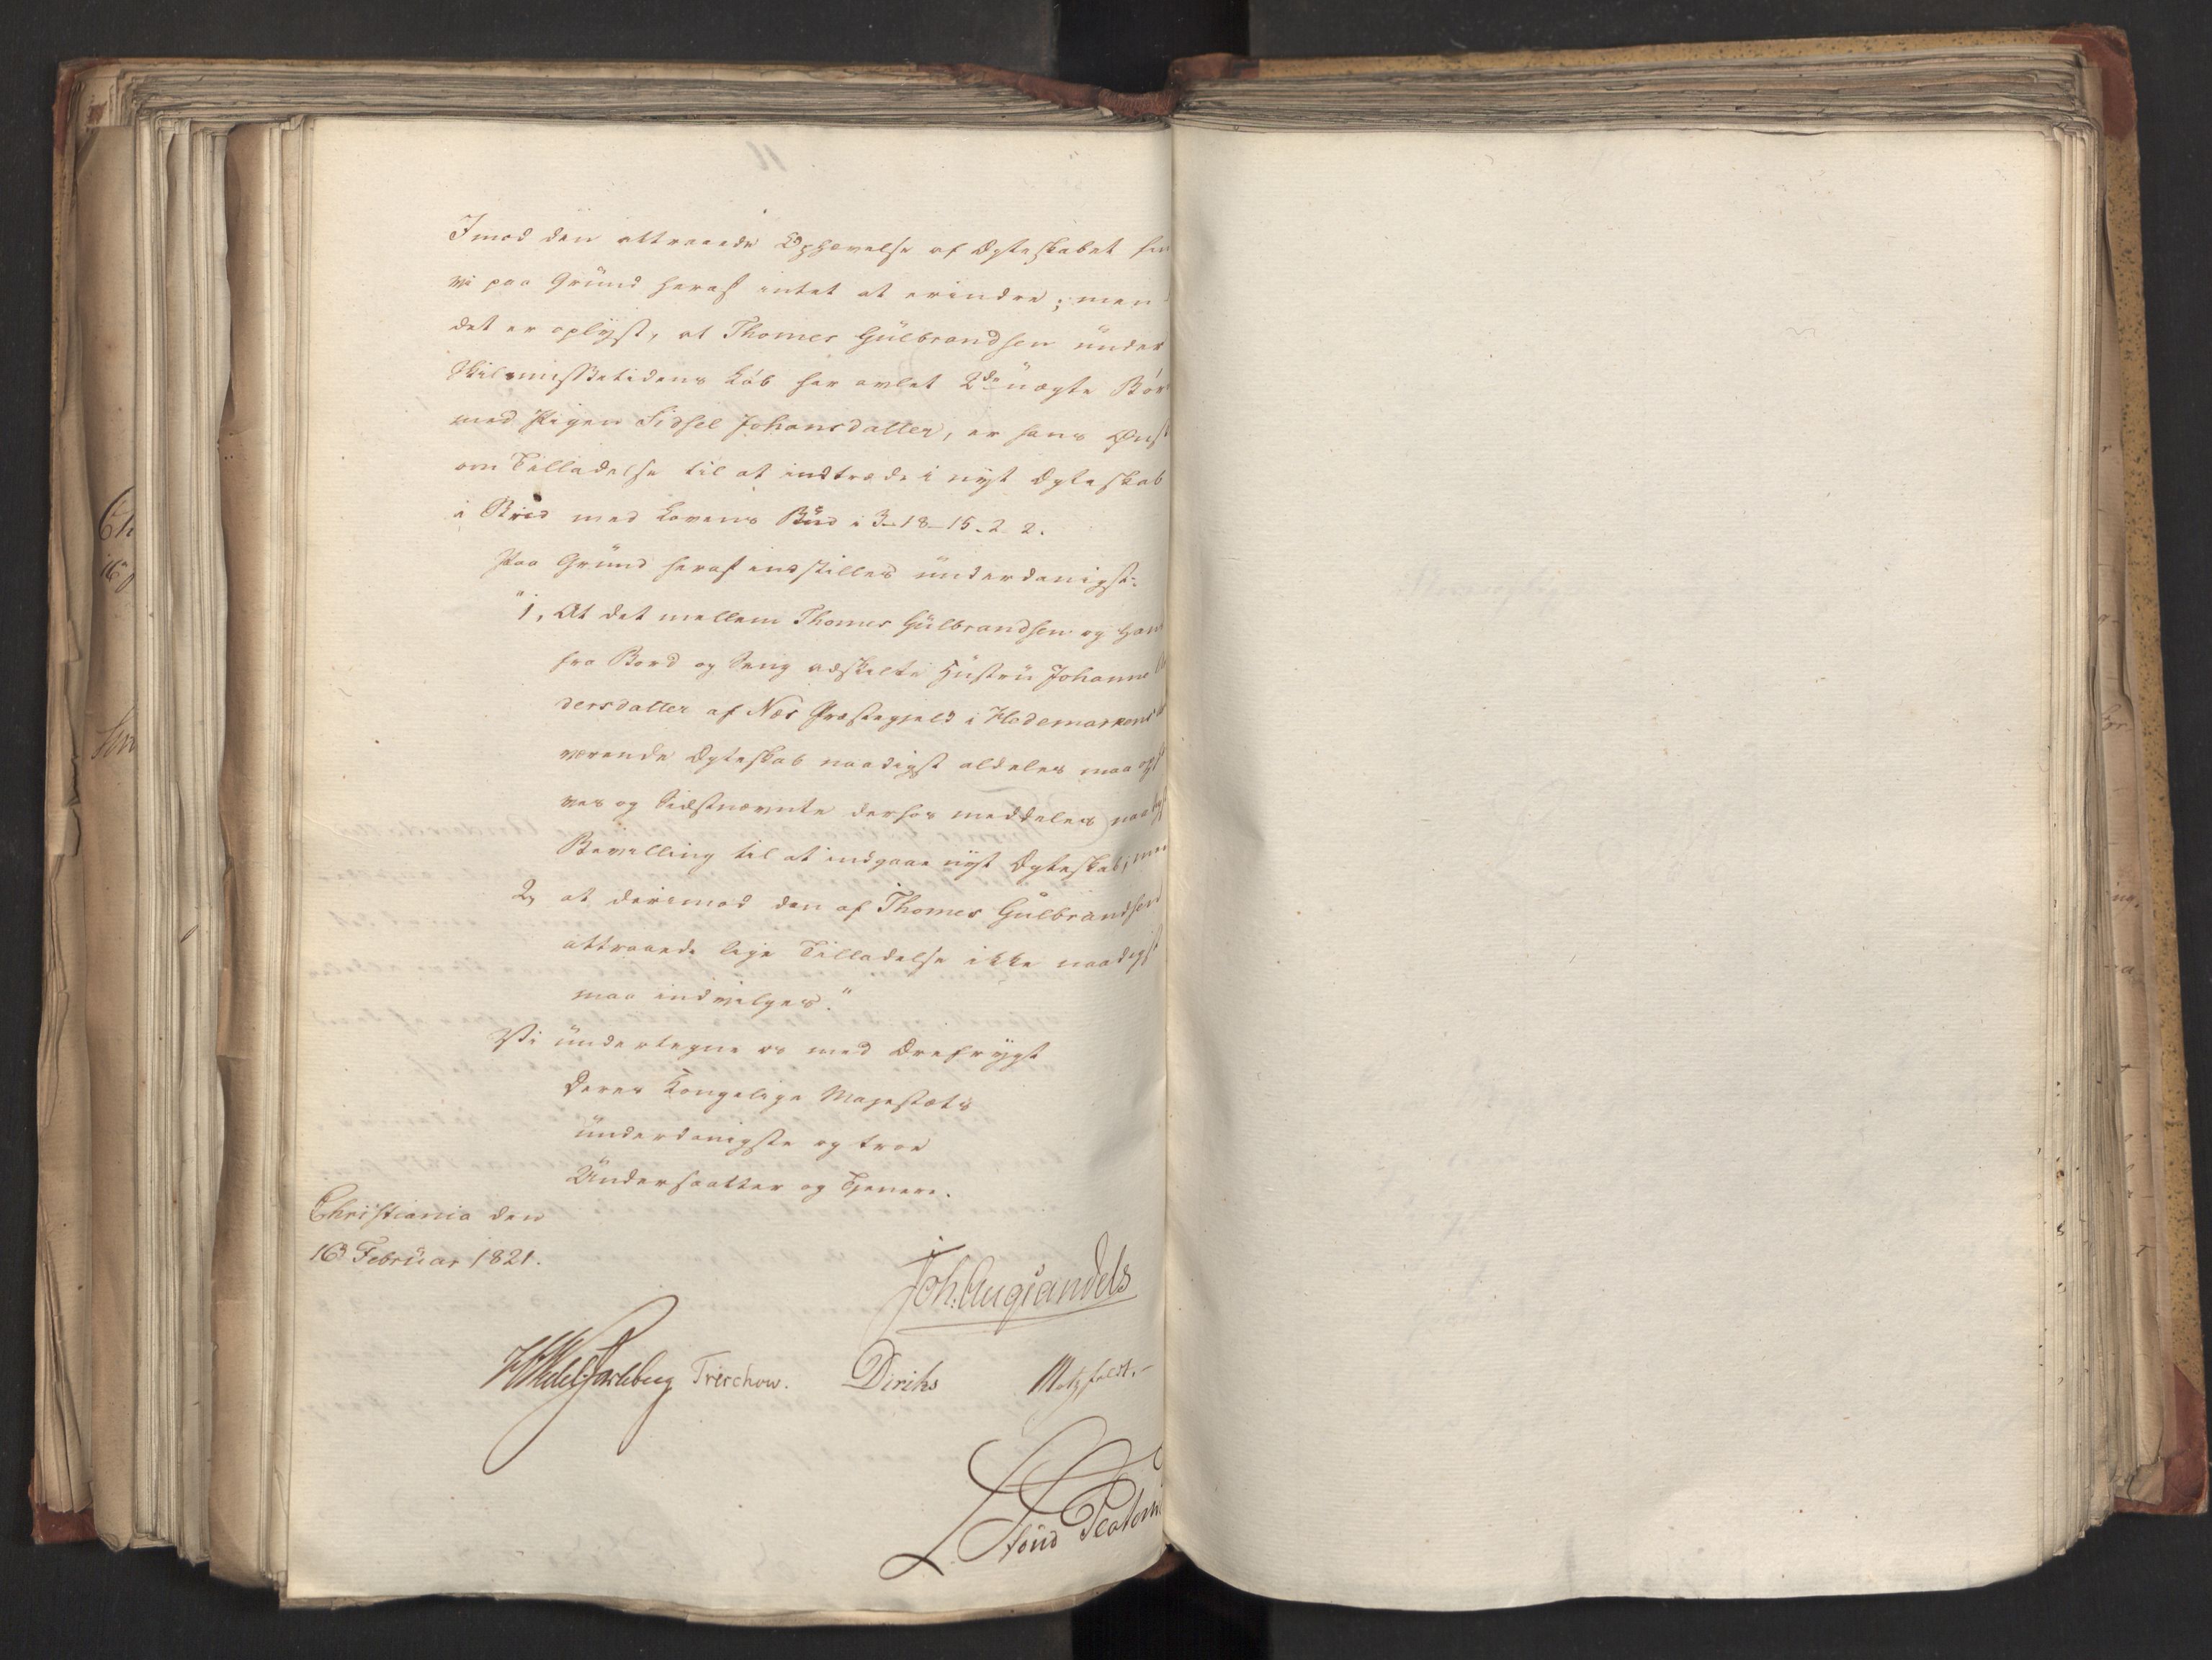 Imod den attraaede Ophævelse af Ægteskabet
vi paa Grund heraf intet at erindre; men
det er oplyst, at Thomes Gulbrandsen under
Skilsmissetidens Løb har avlet 2de uægte Bør
med Pigen Sidsel Johansdatter, er hans Ønsk
om Tilladelse til at indtræde i nyt Ægteskab
i Strid med Lovens Bud i 3-18-15-2 2.
Paa Grund heraf indstilles underdanigst:
"1, At det mellem Thomes Gulbrandsen og hans
fra Bord og Seng adskilte Hustru Johanne
dersdatter af Næs Præstegjeld i Hedemarkens
værende Ægteskab naadigst aldeles maa
ves og Sidstnævnte derhos meddeles
Bevilling til at indgaae nyt Ægteskab; men
2, at derimod den af Thomes Gulbrandsen
attraaede lige Tilladelse ikke naadigst
maa indvilges."
Vi undertegne os med Ærefrygt
Deres Kongelige Majestæts
underdanigste og troe
Undersaatter og Tjenere.
Christiania den
16 Februar 1821.
Joh. Aug Sandels
HWedel Jarlsberg Treschow. Diriks Motzfeldt.